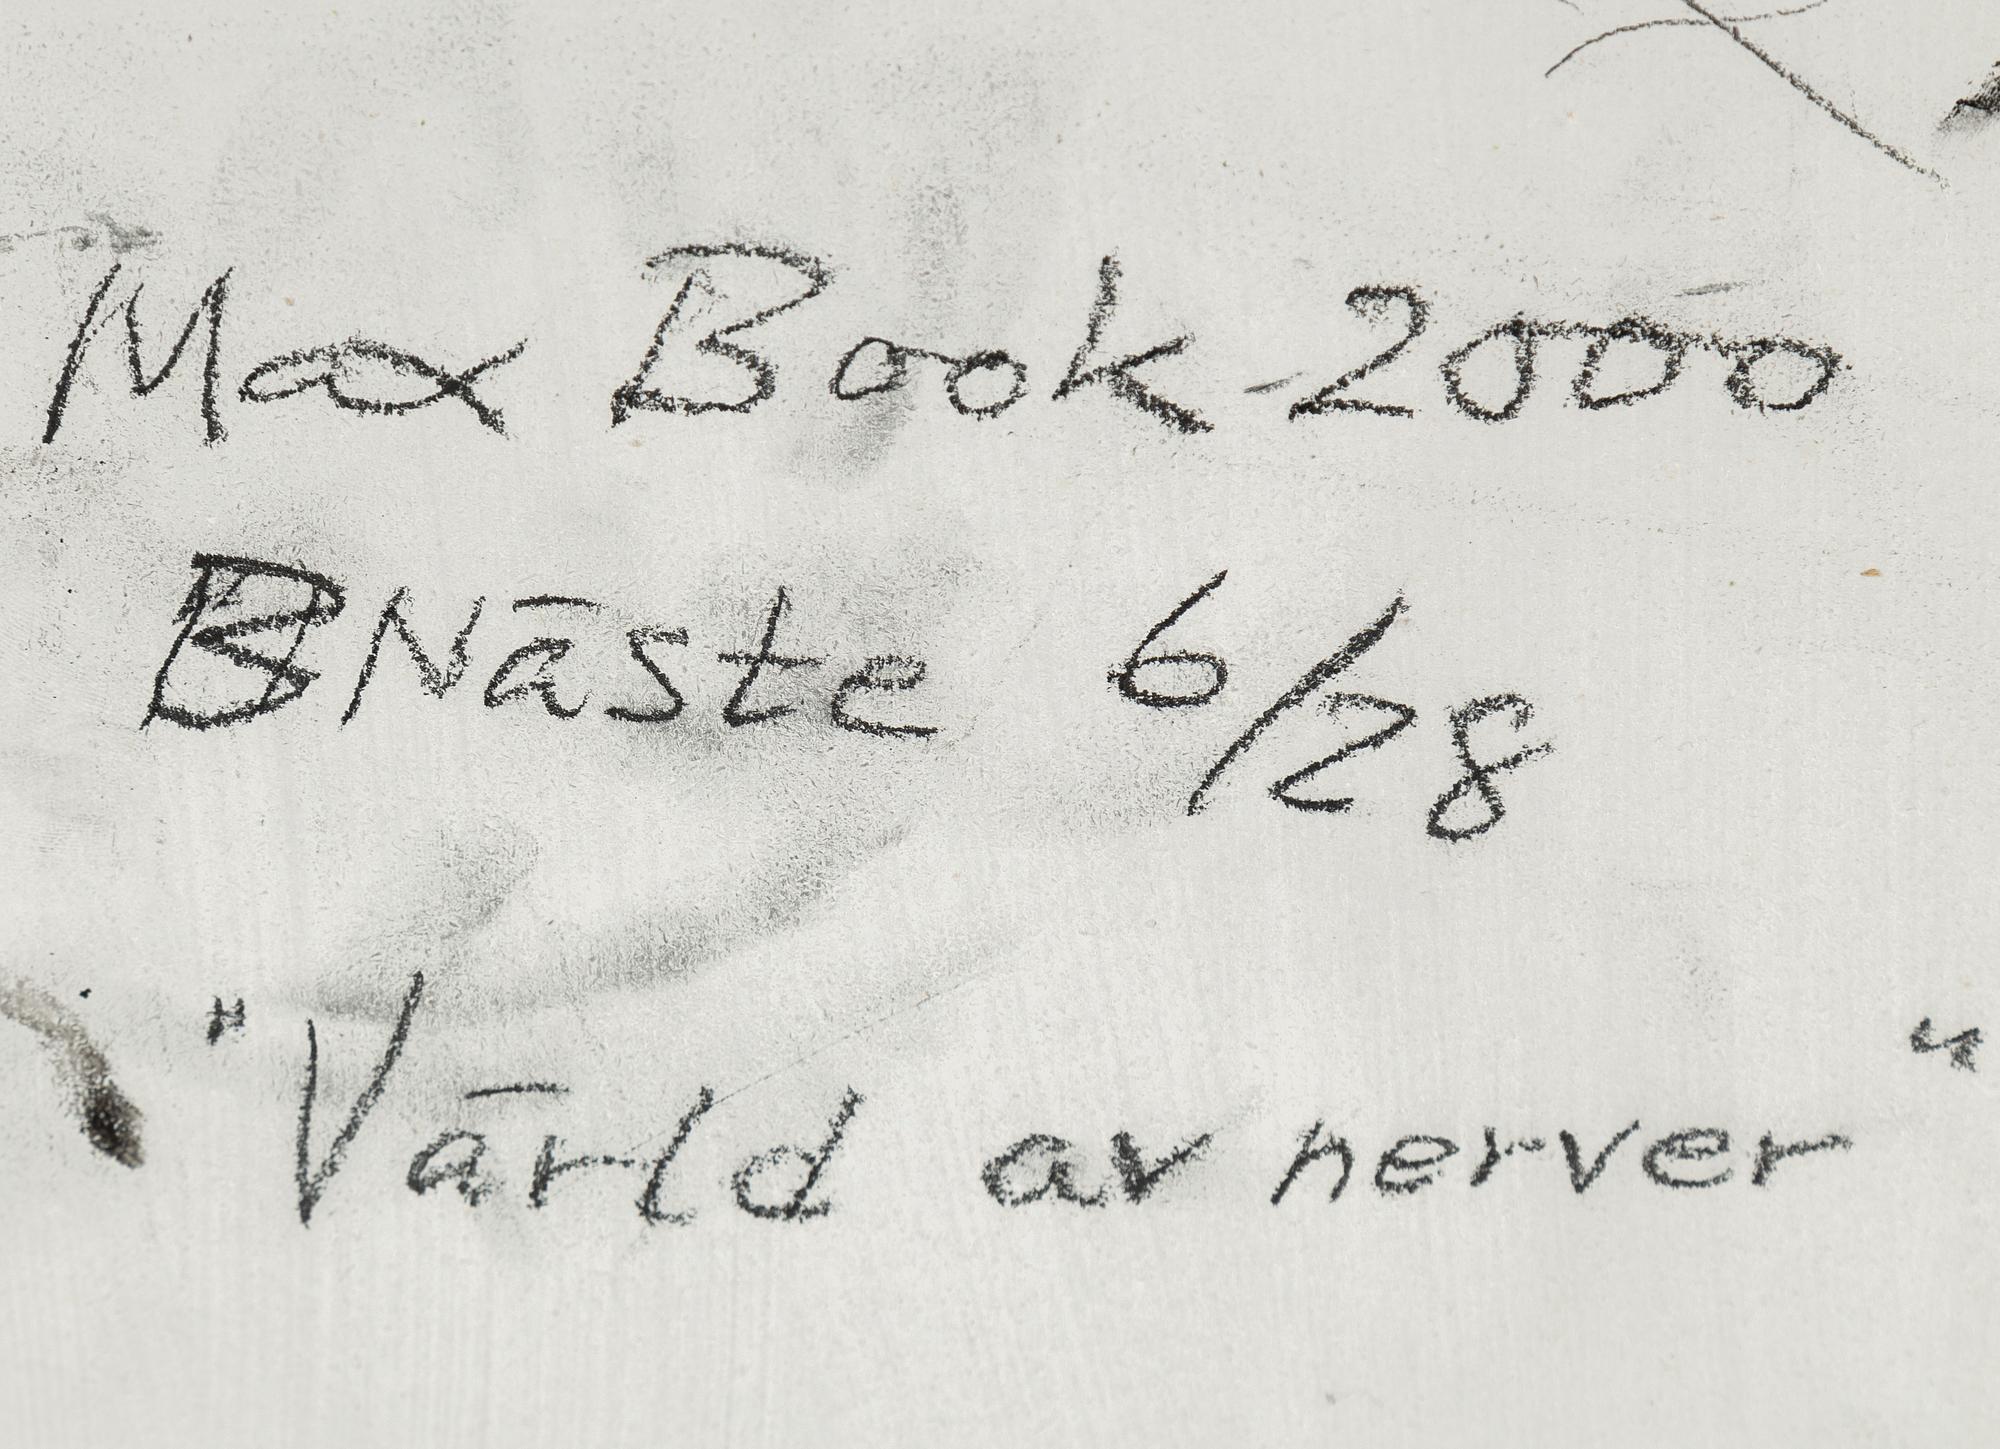 Max Book -2000
BNäste 6/28
"Värld av nerver"